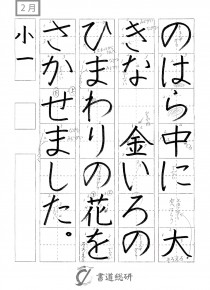 2月
のはら中に大
きな金いろの
ひまわりの花を
さかせました。
小一
書道総研